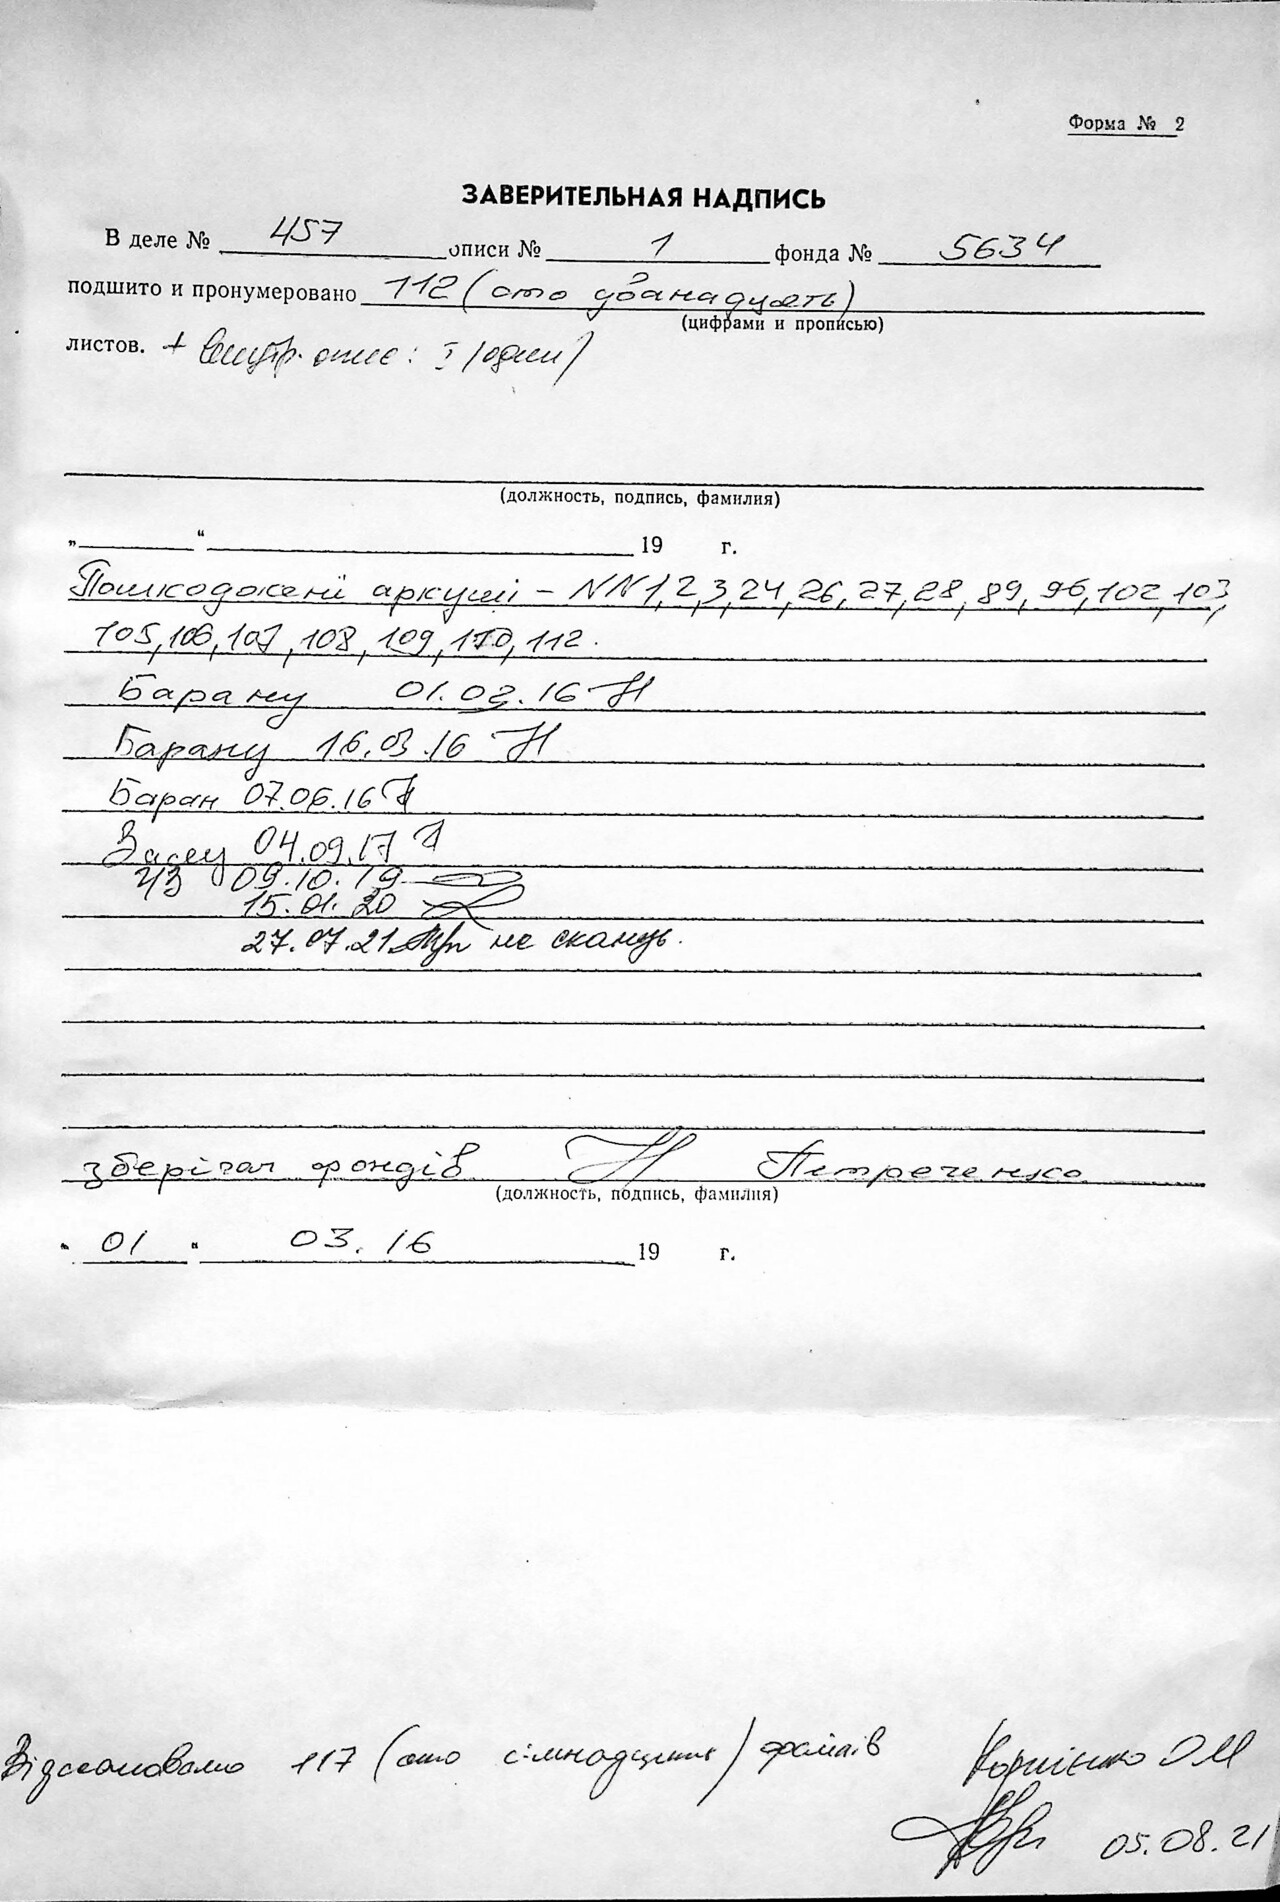 Форма № 2
ЗАВЕРИТЕЛЬНАЯ НАДПИСЬ
В деле № 457 описи № 1 фонда № 5634
подшито и пронумеровано 112 (сто дванадцять)
(цифрами и прописью)
листов. + внутр. опис: I (один)
(должность, подпись, фамилия)
„ “ 19 г.
Пошкоджені аркуші – NN 1, 2, 3, 24, 26, 27, 28, 89, 96, 102, 103,
105, 106, 107, 108, 109, 110, 112.
Барану 01.02.16
Барану 16.03.16
Баран 07.06.16
04.09.17
ЧЗ 09.10.19
15.01.20
27.07.21 не скануь.
зберігач фондів Петреченко
(должность, подпись, фамилия)
" 01 " 03.16 19 г.
Відскановано 117 (сто сімнадцять) файлів Корнієнко О М
05.08.21